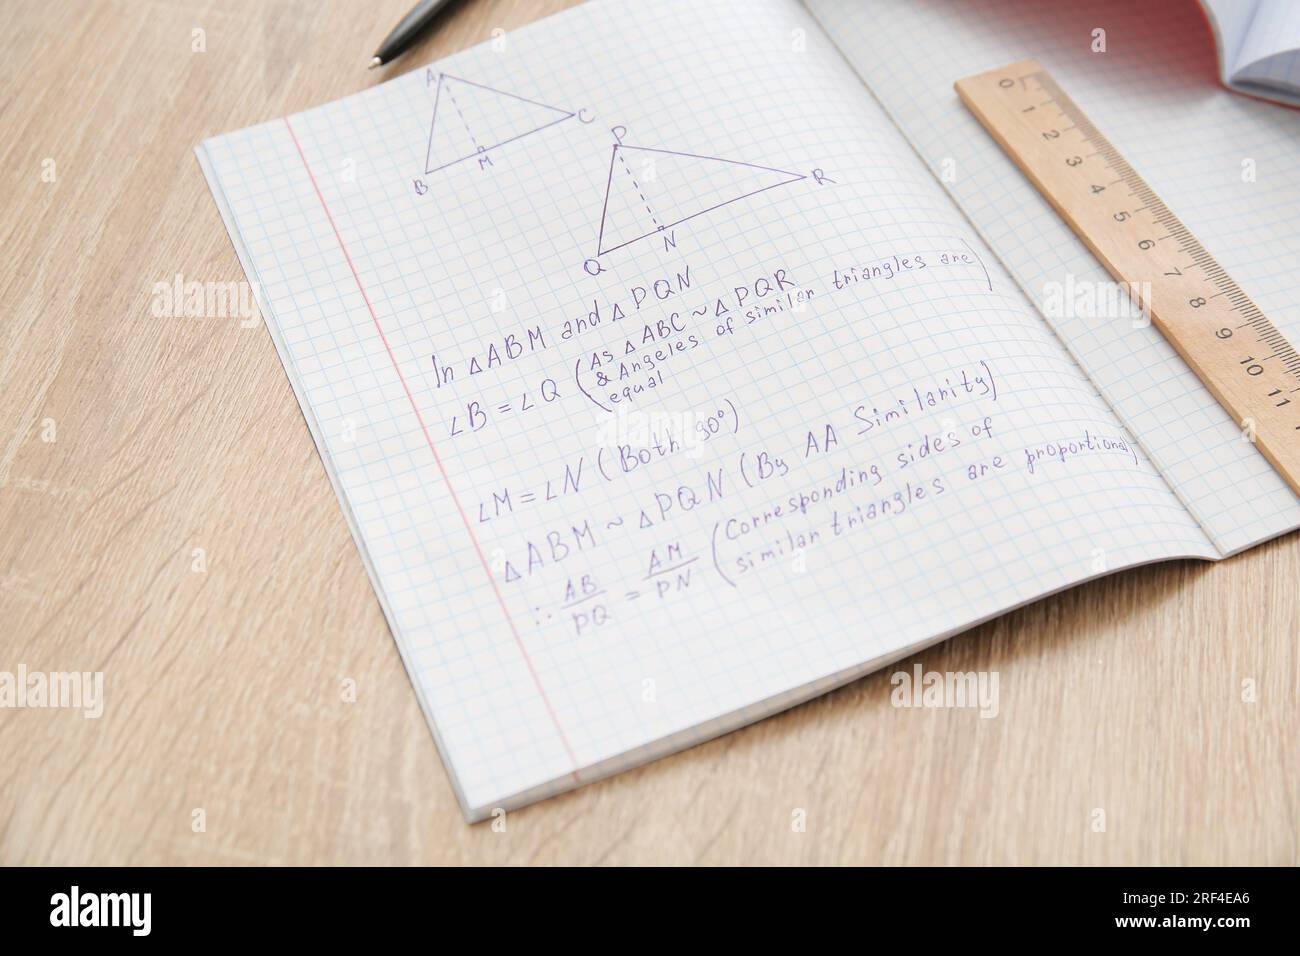 A
C
B
M
P
R
Q
N
In △ABM and △PQN
∠B = ∠Q (As △ABC ~ △PQR
& Angeles of similar triangles are
equal)
∠M = ∠N (Both 90°)
△ABM ~ △PQN (By AA Similarity)
∴ AB/PQ = AM/PN (Corresponding sides of
similar triangles are proportional)
0 1 2 3 4 5 6 7 8 9 10 11
alamy
alamy
Image ID: 2RF4EA6
www.alamy.com